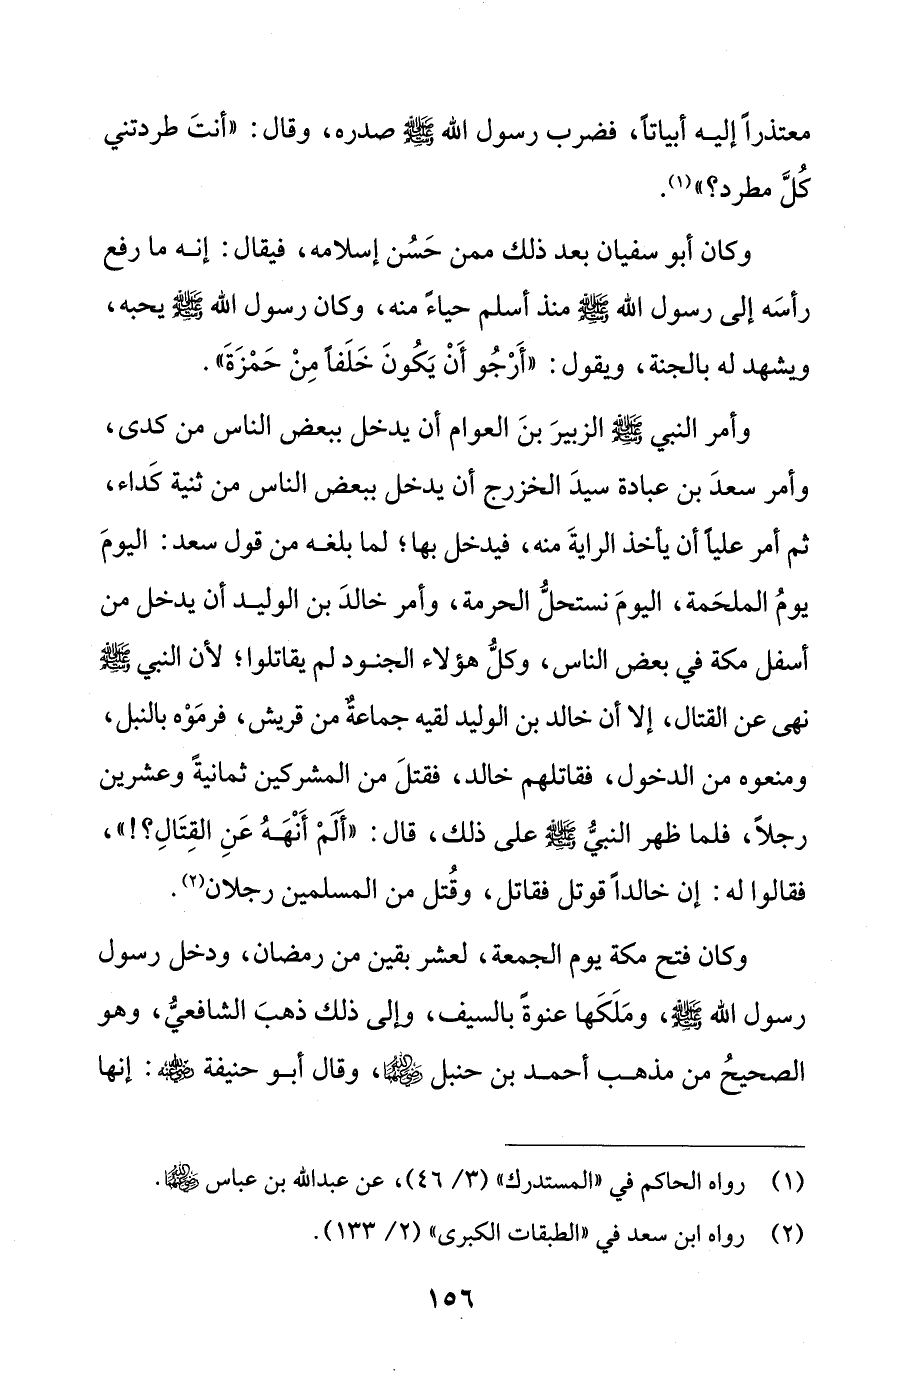 معتذراً إليه أبياتاً، فضرب رسول الله ﷺ صدره، وقال: «أنتَ طردتني
كُلَّ مطرد؟»(١).
وكان أبو سفيان بعد ذلك ممن حَسُن إسلامه، فيقال: إنه ما رفع
رأسَه إلى رسول الله ﷺ منذ أسلم حياءً منه، وكان رسول الله ﷺ يحبه،
ويشهد له بالجنة، ويقول: «أَرْجُو أَنْ يَكُونَ خَلَفاً مِنْ حَمْزَةَ».
وأمر النبي ﷺ الزبيرَ بنَ العوام أن يدخل ببعض الناس من كدى،
وأمر سعدَ بن عبادة سيدَ الخزرج أن يدخل ببعض الناس من ثنية كَداء،
ثم أمر علياً أن يأخذ الرايةَ منه، فيدخل بها؛ لما بلغه من قول سعد: اليومَ
يومُ الملحَمة، اليومَ نستحلُّ الحرمة، وأمر خالدَ بن الوليد أن يدخل من
أسفل مكة في بعض الناس، وكلُّ هؤلاء الجنود لم يقاتلوا؛ لأن النبي ﷺ
نهى عن القتال، إلا أن خالد بن الوليد لقيه جماعةٌ من قريش، فرمَوْه بالنبل،
ومنعوه من الدخول، فقاتلهم خالد، فقتلَ من المشركين ثمانيةً وعشرين
رجلاً، فلما ظهر النبيُّ ﷺ على ذلك، قال: «أَلَمْ أَنْهَهُ عَنِ القِتَالِ؟!»،
فقالوا له: إن خالداً قوتل فقاتل، وقُتل من المسلمين رجلان(٢).
وكان فتح مكة يوم الجمعة، لعشر بقين من رمضان، ودخل رسول
رسول الله ﷺ، ومَلَكَها عنوةً بالسيف، وإلى ذلك ذهبَ الشافعيُّ، وهو
الصحيحُ من مذهب أحمد بن حنبل رضي الله عنهما، وقال أبو حنيفة رضي الله عنه: إنها
(١) رواه الحاكم في «المستدرك» (٣/ ٤٦)، عن عبدالله بن عباس رضي الله عنهما.
(٢) رواه ابن سعد في «الطبقات الكبرى» (٢/ ١٣٣).
١٥٦